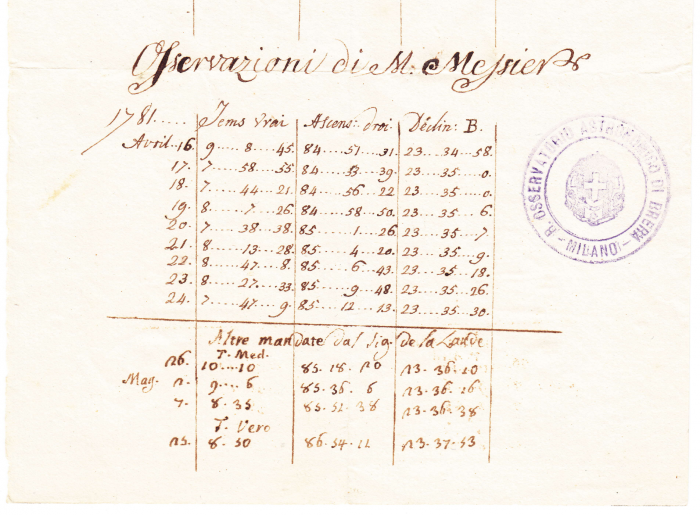 Osservazioni di M. Messier
1781..... Tems vrai Ascens: droi. Déclin: B.
Avril. 16. 9....8....45. 84....51....31. 23....34....58.
17. 7....58....55. 84....53....39. 23....35....0.
18. 7....44....21. 84....56....22 23....35....0.
19. 8....7....26. 84....58....50. 23....35....6.
20. 7....38....38. 85....1....26. 23....35....7.
21. 8....13....28. 85....4....20. 23....35....9.
22. 8....47....8. 85....6....43. 23....35....18.
23. 8....27....33. 85....9....48. 23....35....26.
24. 7....47....9. 85....12....13. 23....35....30.
Altre mandate dal Sig. de la Lande
T. Med.
26. 10....10 85.18.20 23.36.10
Mag. 2. 9....6 85.36.6 23.36.26
7. 8.35 85.51.38 23.36.38
T. Vero
25. 8.50 86.54.11 23.37.53
R. OSSERVATORIO ASTRONOMICO DI BRERA
- MILANO -